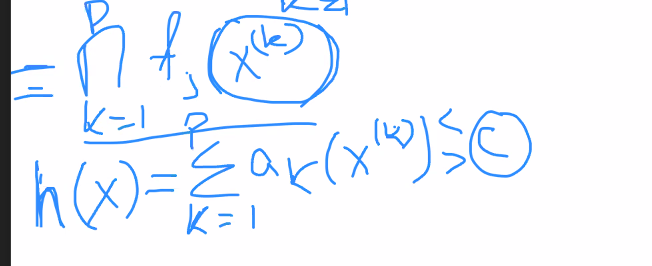 = ∏_{k=1}^{p} f_j x^{(k)}
h(x) = ∑_{k=1}^{p} a_k (x^{(k)}) ≶ c